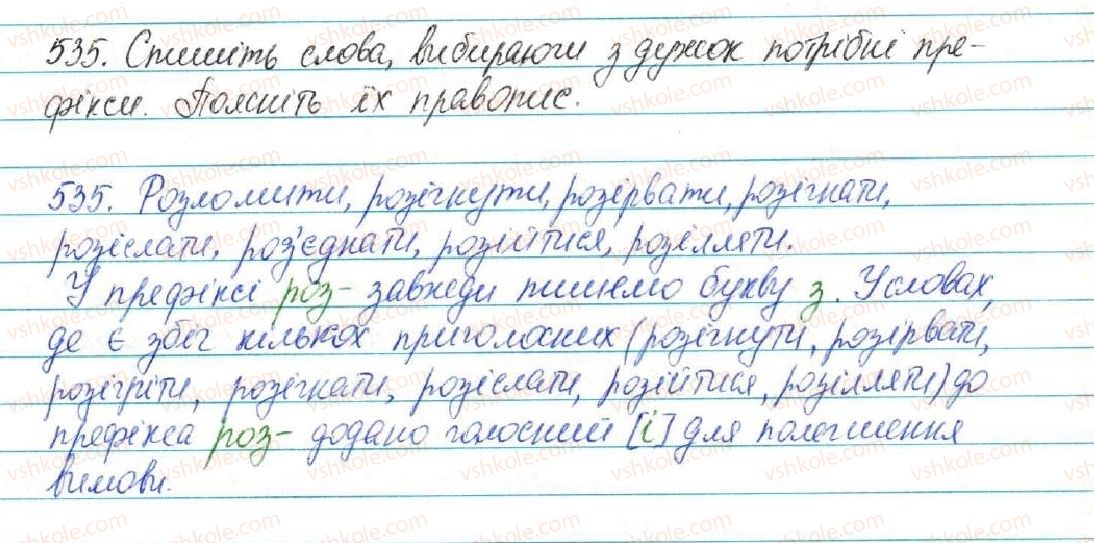 535. Спишіть слова, вибираючи з дужок потрібні пре-
фікси. Поясніть їх правопис.
535. Розломити, розігнути, розірвати, розігнати,
розіслати, роз'єднати, розійтися, розілляти.
У префіксі роз- завжди пишемо букву з. У словах,
де є збіг кількох приголосних (розігнути, розірвати,
розігріти, розігнати, розіслати, розійтися, розілляти) до
префікса роз- додано голосний [і] для полегшення
вимови.